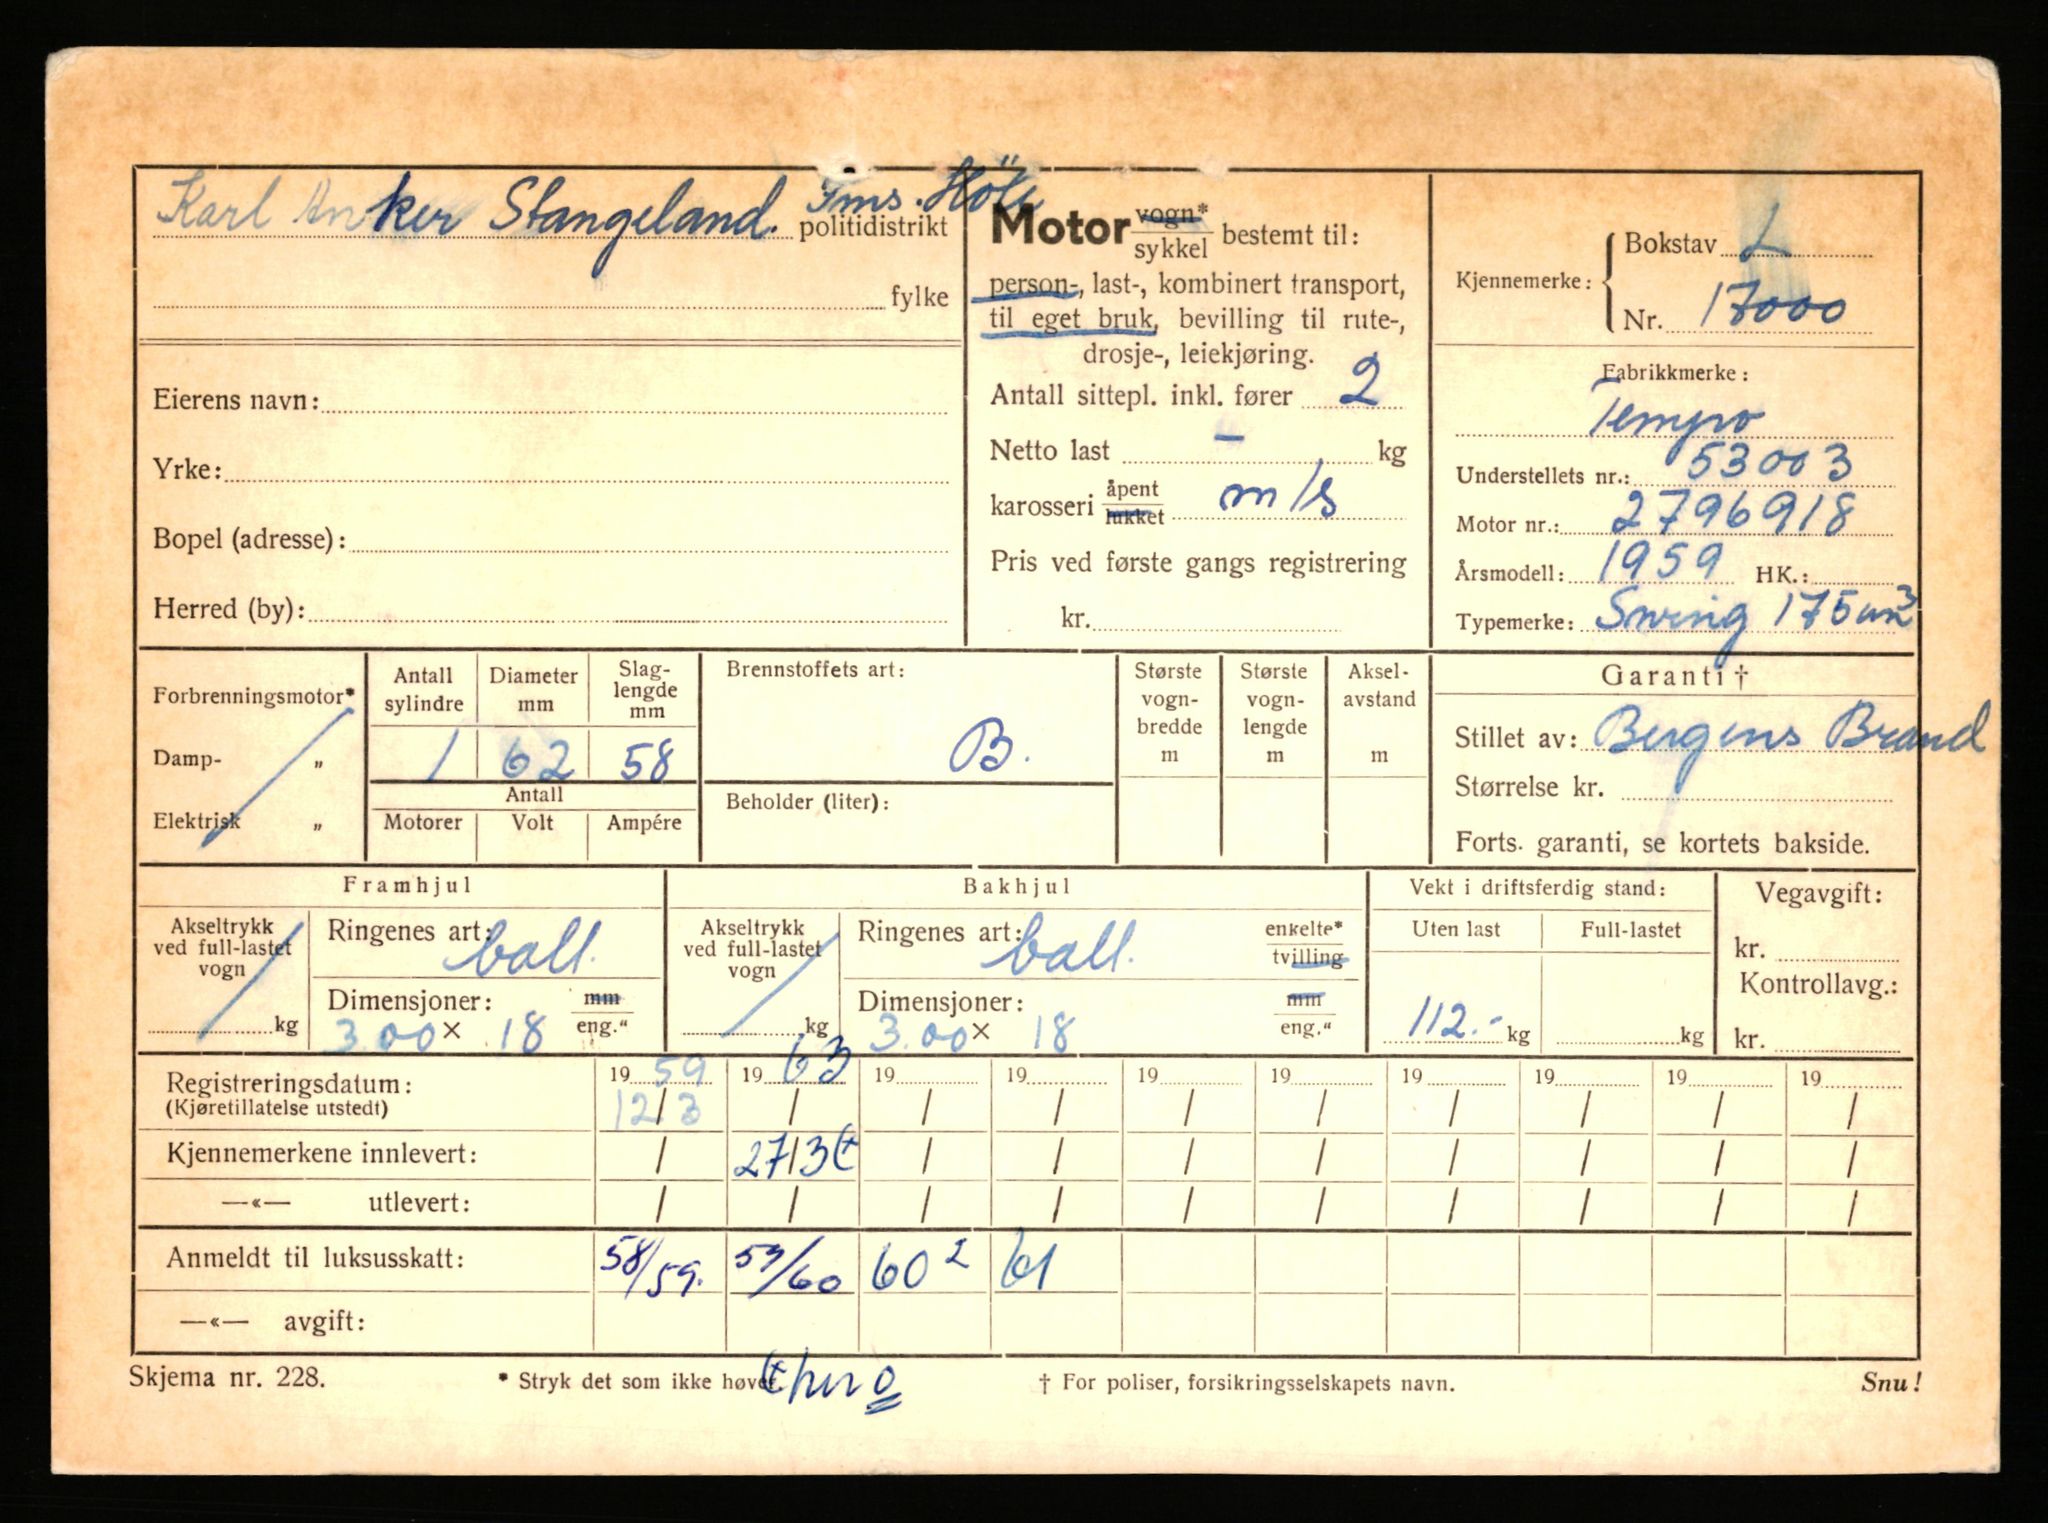 Karl Anker Stangeland. Ims. Höle
politidistrikt
fylke
Eierens navn:
Yrke:
Bopel (adresse):
Herred (by):
Motor vogn*/sykkel bestemt til:
person-, last-, kombinert transport,
til eget bruk, bevilling til rute-,
drosje-, leiekjøring.
Antall sittepl. inkl. fører 2
Netto last - kg
karosseri åpent/lukket m/s
Pris ved første gangs registrering
kr.
Kjennemerke: Bokstav L
Nr. 17000
Fabrikkmerke:
Tempo
Understellets nr.: 53003
Motor nr.: 2796918
Årsmodell: 1959 HK.:
Typemerke: Swing 175 cm3
Forbrenningsmotor*
Damp- „
Elektrisk „
Antall sylindre Diameter mm Slag-lengde mm
1 62 58
Antall
Motorer Volt Ampére
Brennstoffets art:
B.
Beholder (liter):
Største vogn-bredde m
Største vogn-lengde m
Aksel-avstand m
Garanti †
Stillet av: Bergens Brand
Størrelse kr.
Forts. garanti, se kortets bakside.
Framhjul
Akseltrykk ved full-lastet vogn kg
Ringenes art: ball.
Dimensjoner: mm/eng."
3.00 × 18
Bakhjul
Akseltrykk ved full-lastet vogn kg
Ringenes art: ball. enkelte*/tvilling
Dimensjoner: mm/eng."
3.00 × 18
Vekt i driftsferdig stand:
Uten last Full-lastet
112.- kg kg
Vegavgift:
kr.
Kontrollavg.:
kr.
Registreringsdatum: 19 59 19 63 19 19 19 19 19 19 19 19
(Kjøretillatelse utstedt) 12/3 / / / / / / / / /
Kjennemerkene innlevert: / 27/3 / / / / / / / /
—«— utlevert: / / / / / / / / / /
Anmeldt til luksusskatt: 58/59. 59/60 60 2 61
—«— avgift:
Skjema nr. 228. * Stryk det som ikke høver † For poliser, forsikringsselskapets navn. Snu!